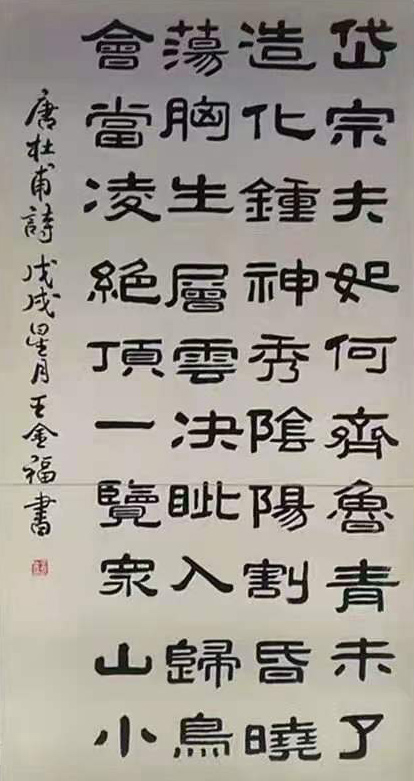 岱宗夫如何齊魯青未了
造化鍾神秀陰陽割昏曉
蕩胸生層雲決眦入歸鳥
會當凌絕頂一覽眾山小
唐杜甫詩戊戌星月王金福書